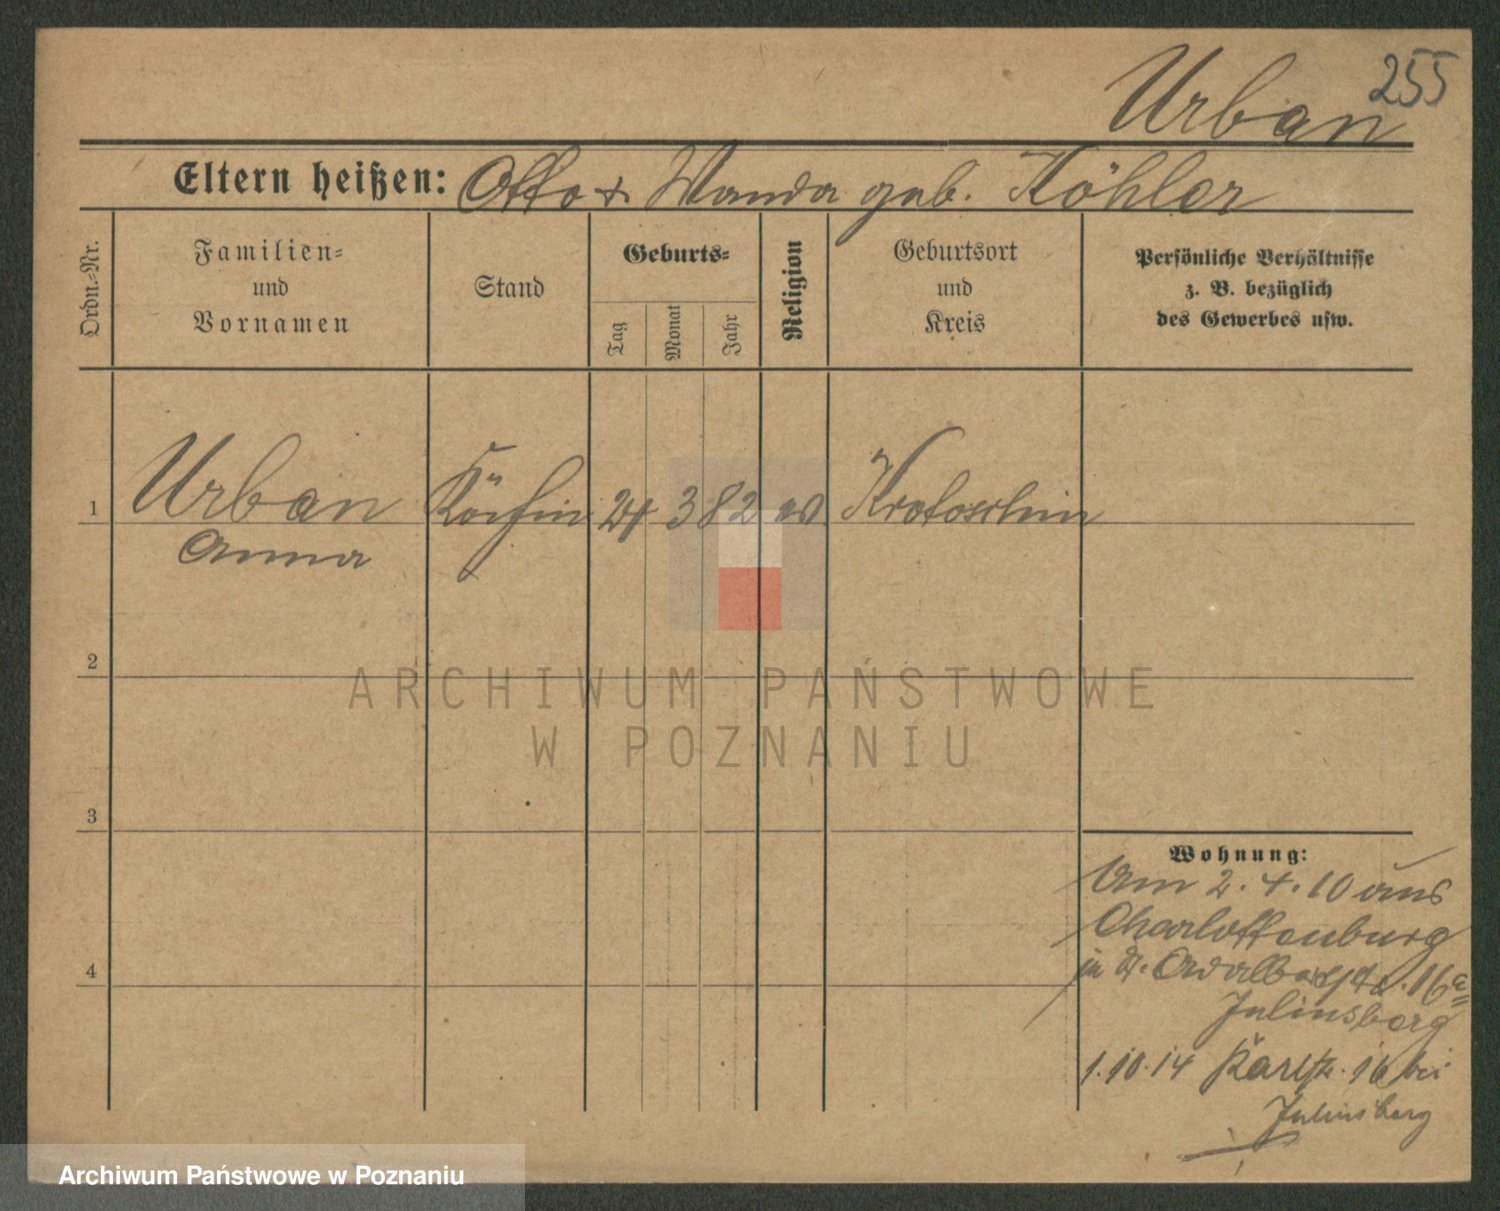 255
Urban
Eltern heißen: Otto & Wanda geb. Köhler
Ordn.-Nr.
Familien-
und
Vornamen
Stand
Geburts-
Tag
Monat
Jahr
Religion
Geburtsort
und
Kreis
Persönliche Verhältnisse
z. B. bezüglich
des Gewerbes usw.
1 Urban Köchin 24 3 82 ev Krotoschin
Anna
2
3
4
Wohnung:
Am 2.4.10 aus
Charlottenburg
in St. Adalbertstr. 16a
Juliusberg
1.10.14 16 bei
Juliusberg
ARCHIWUM PAŃSTWOWE
W POZNANIU
Archiwum Państwowe w Poznaniu